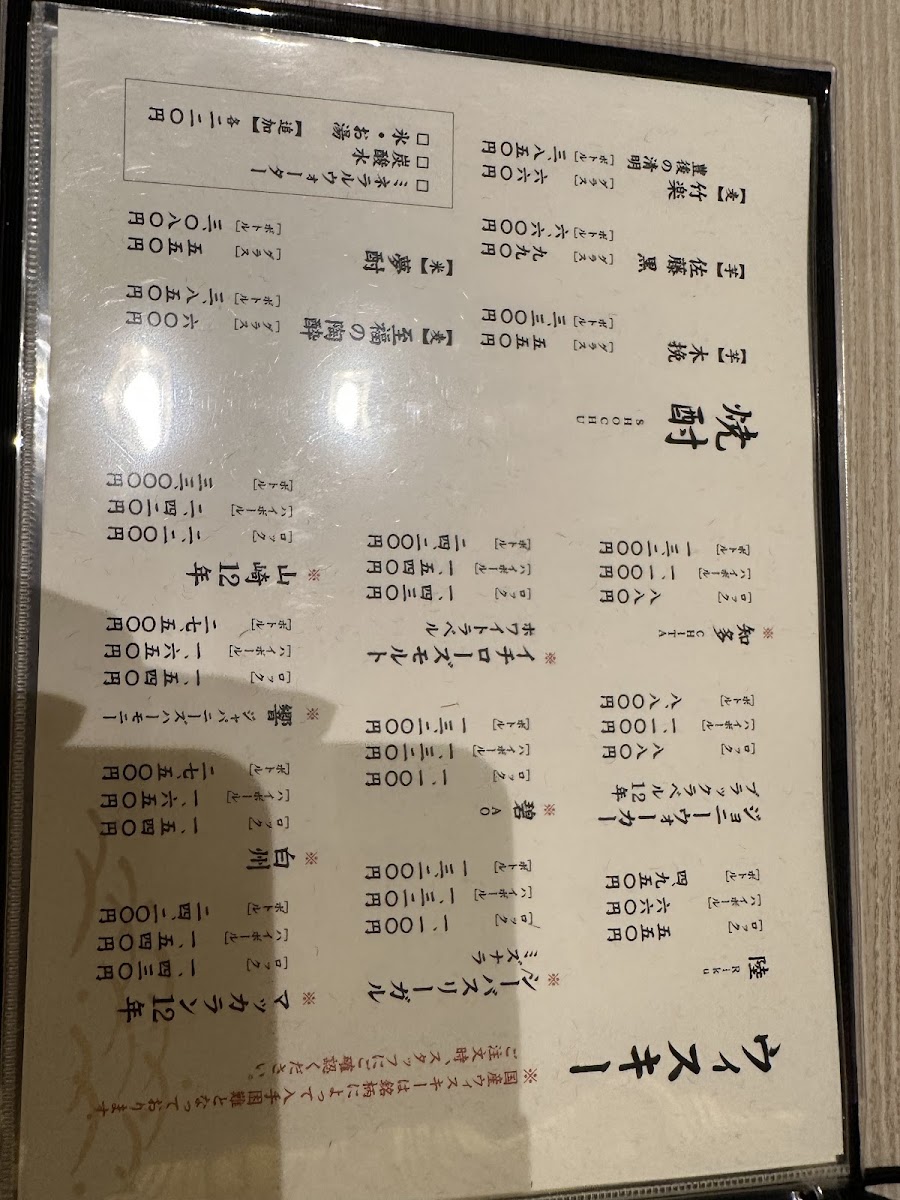 ウィスキー
※国産ウィスキーは銘柄によって入手困難となっております。
ご注文時、スタッフにご確認ください。
陸 Riku
[ロック] 五五〇円
[ハイボール] 六六〇円
[ボトル] 四、九五〇円
ジョニーウォーカー
ブラックラベル 12年
[ロック] 八八〇円
[ハイボール] 一、一〇〇円
[ボトル] 八、八〇〇円
※知多 CHITA
[ロック] 八八〇円
[ハイボール] 一、一〇〇円
[ボトル] 一三、二〇〇円
※シーバスリーガル
ミズナラ
[ロック] 一、一〇〇円
[ハイボール] 一、三二〇円
[ボトル] 一三、二〇〇円
※碧 AO
[ロック] 一、一〇〇円
[ハイボール] 一、三二〇円
[ボトル] 一三、二〇〇円
※イチローズモルト
ホワイトラベル
[ロック] 一、四三〇円
[ハイボール] 一、五四〇円
[ボトル] 二四、二〇〇円
※マッカラン12年
[ロック] 一、四三〇円
[ハイボール] 一、五四〇円
[ボトル] 二四、二〇〇円
※白州
[ロック] 一、五四〇円
[ハイボール] 一、六五〇円
[ボトル] 二七、五〇〇円
※響 ジャパニーズハーモニー
[ロック] 一、五四〇円
[ハイボール] 一、六五〇円
[ボトル] 二七、五〇〇円
※山崎12年
[ロック] 二、二〇〇円
[ハイボール] 二、四二〇円
[ボトル] 三三、〇〇〇円
焼酎
SHOCHU
【芋】木挽
[グラス] 五五〇円
[ボトル] 三、三〇〇円
【芋】佐藤 黒
[グラス] 九九〇円
[ボトル] 六、六〇〇円
【麦】竹楽
豊後の清明
[グラス] 六六〇円
[ボトル] 三、八五〇円
【麦】至福の陶酔
[グラス] 六〇〇円
[ボトル] 三、八五〇円
【米】夢酎
[グラス] 五五〇円
[ボトル] 三、〇八〇円
□ミネラルウォーター
□炭酸水
□氷・お湯
【追加】各二二〇円